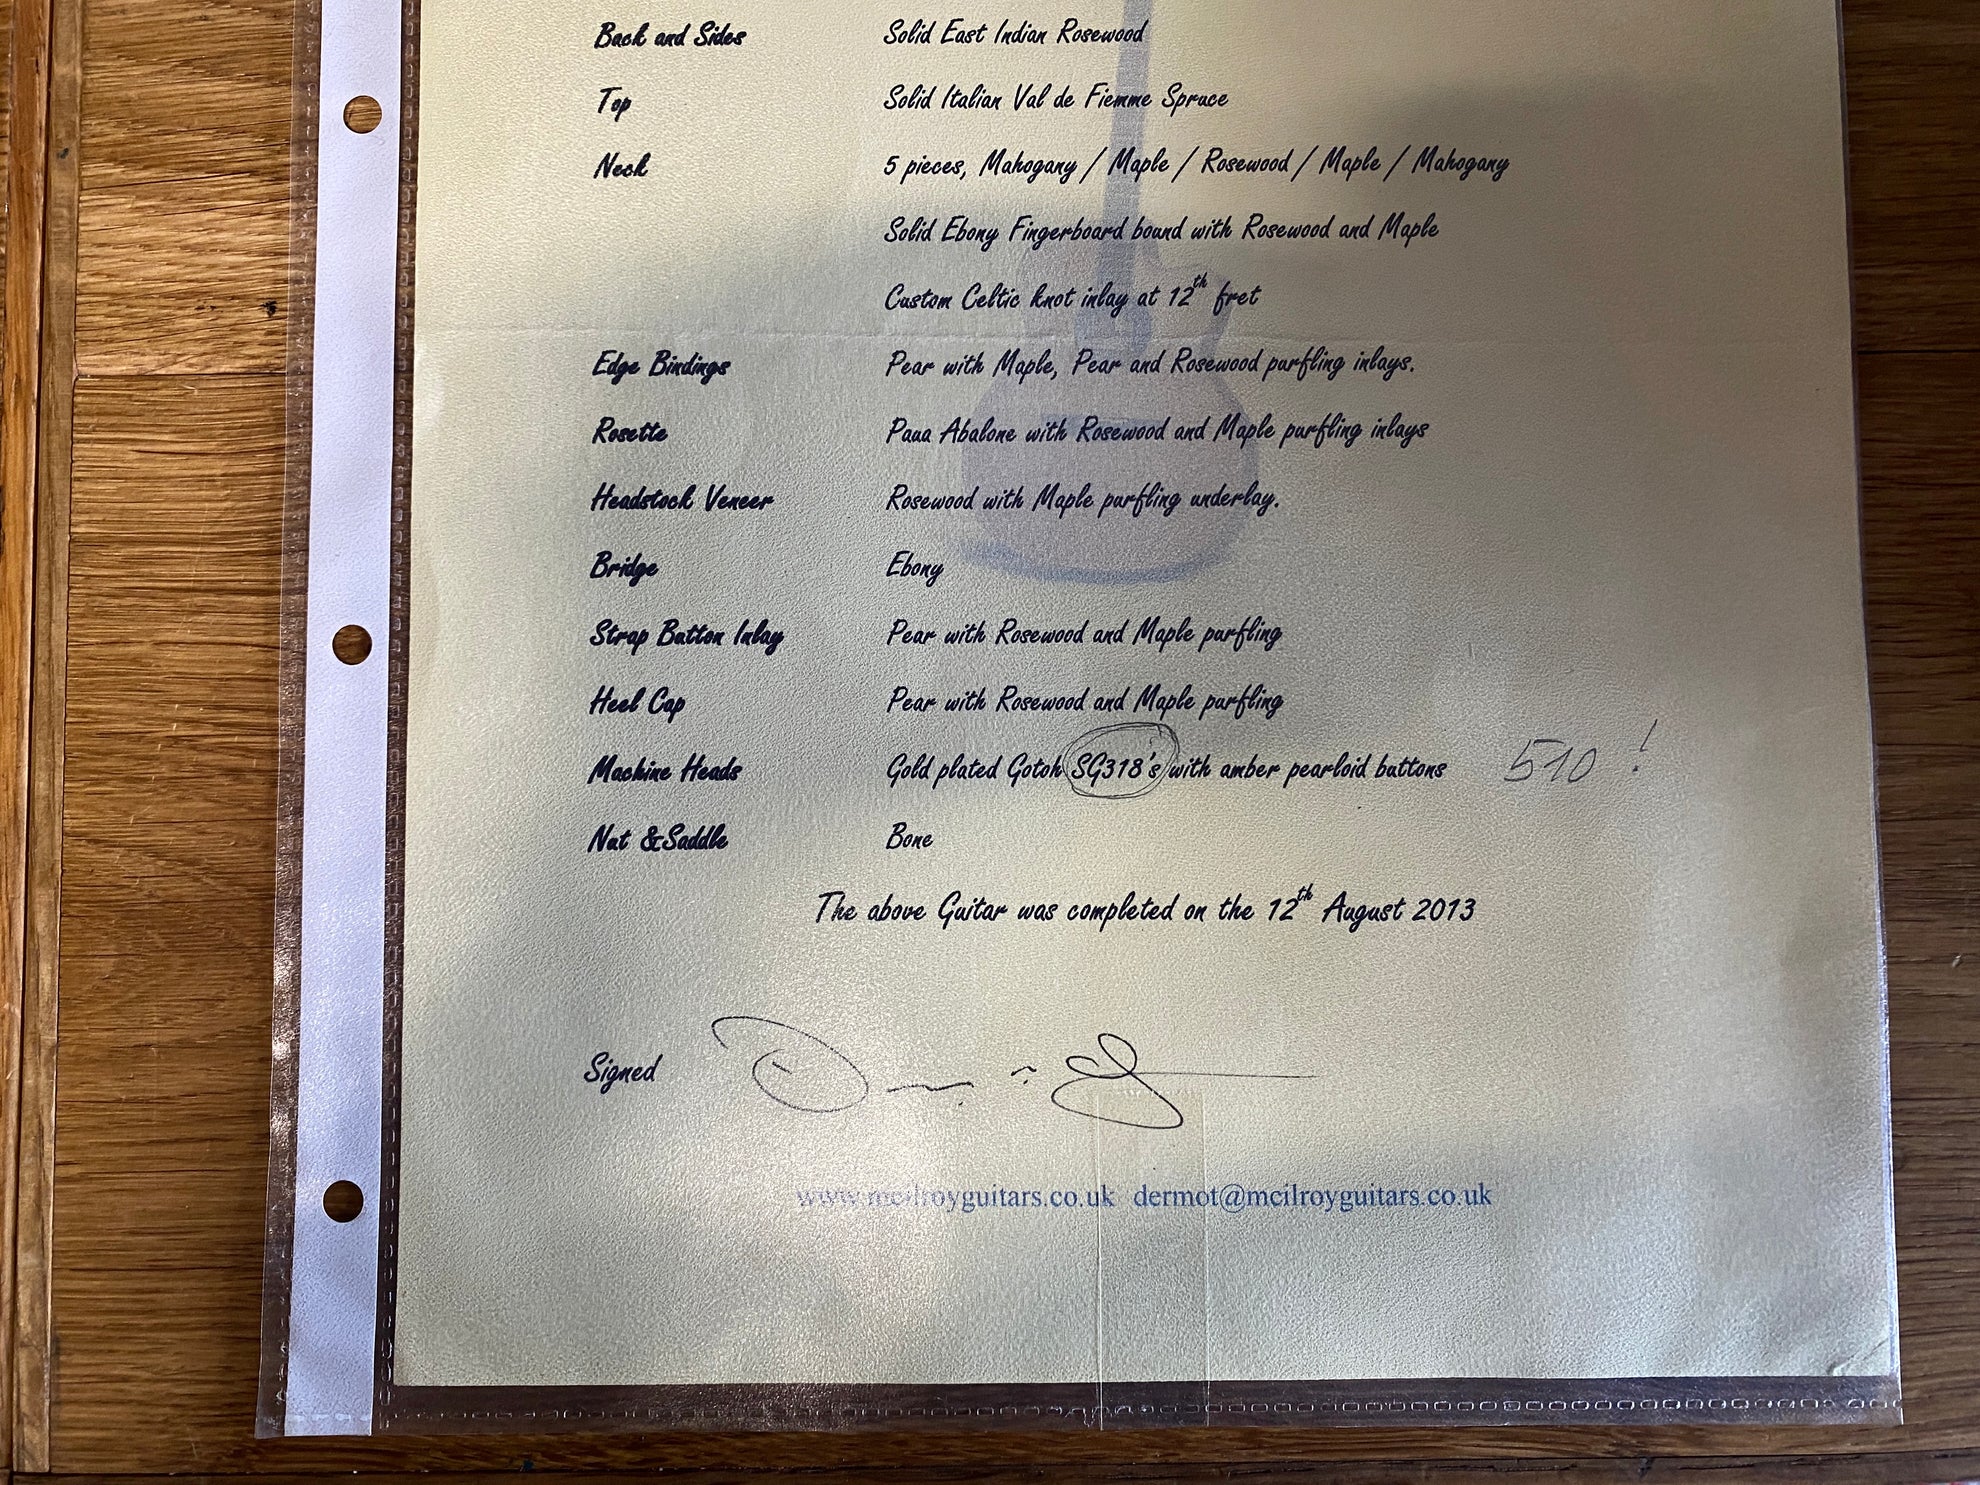 Back and Sides Solid East Indian Rosewood
Top Solid Italian Val de Fiemme Spruce
Neck 5 pieces, Mahogany / Maple / Rosewood / Maple / Mahogany
Solid Ebony Fingerboard bound with Rosewood and Maple
Custom Celtic knot inlay at 12th fret
Edge Bindings Pear with Maple, Pear and Rosewood purfling inlays.
Rosette Paua Abalone with Rosewood and Maple purfling inlays
Headstock Veneer Rosewood with Maple purfling underlay.
Bridge Ebony
Strap Button Inlay Pear with Rosewood and Maple purfling
Heel Cap Pear with Rosewood and Maple purfling
Machine Heads Gold plated Gotoh SG318's with amber pearloid buttons 510 !
Nut &Saddle Bone
The above Guitar was completed on the 12th August 2013
Signed
www.mcilroyguitars.co.uk dermot@mcilroyguitars.co.uk